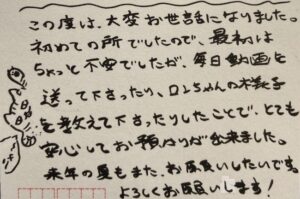 この度は、大変お世話になりました。
初めての所でしたので、最初は
ちょっと不安でしたが、毎日動画を
送って下さったり、ロンちゃんの様子
を教えて下さったりしたことで、とても
安心してお預けが出来ました。
来年の夏もまた、お願いしたいです。
よろしくお願いします!